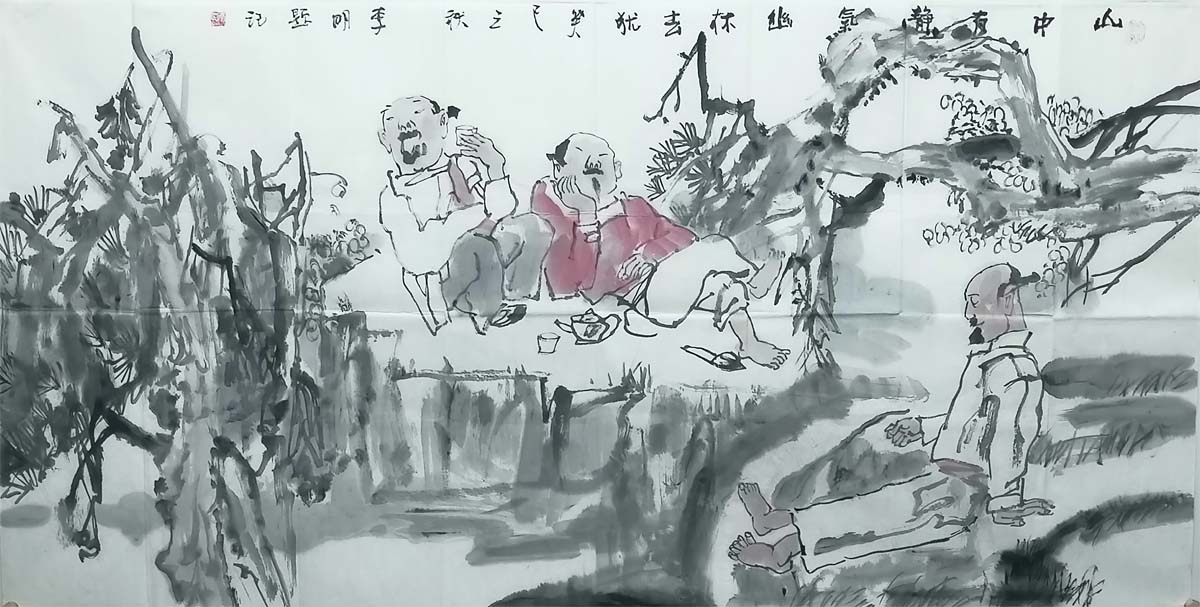 山中有静氣幽林去犹癸巳之秋李明题记